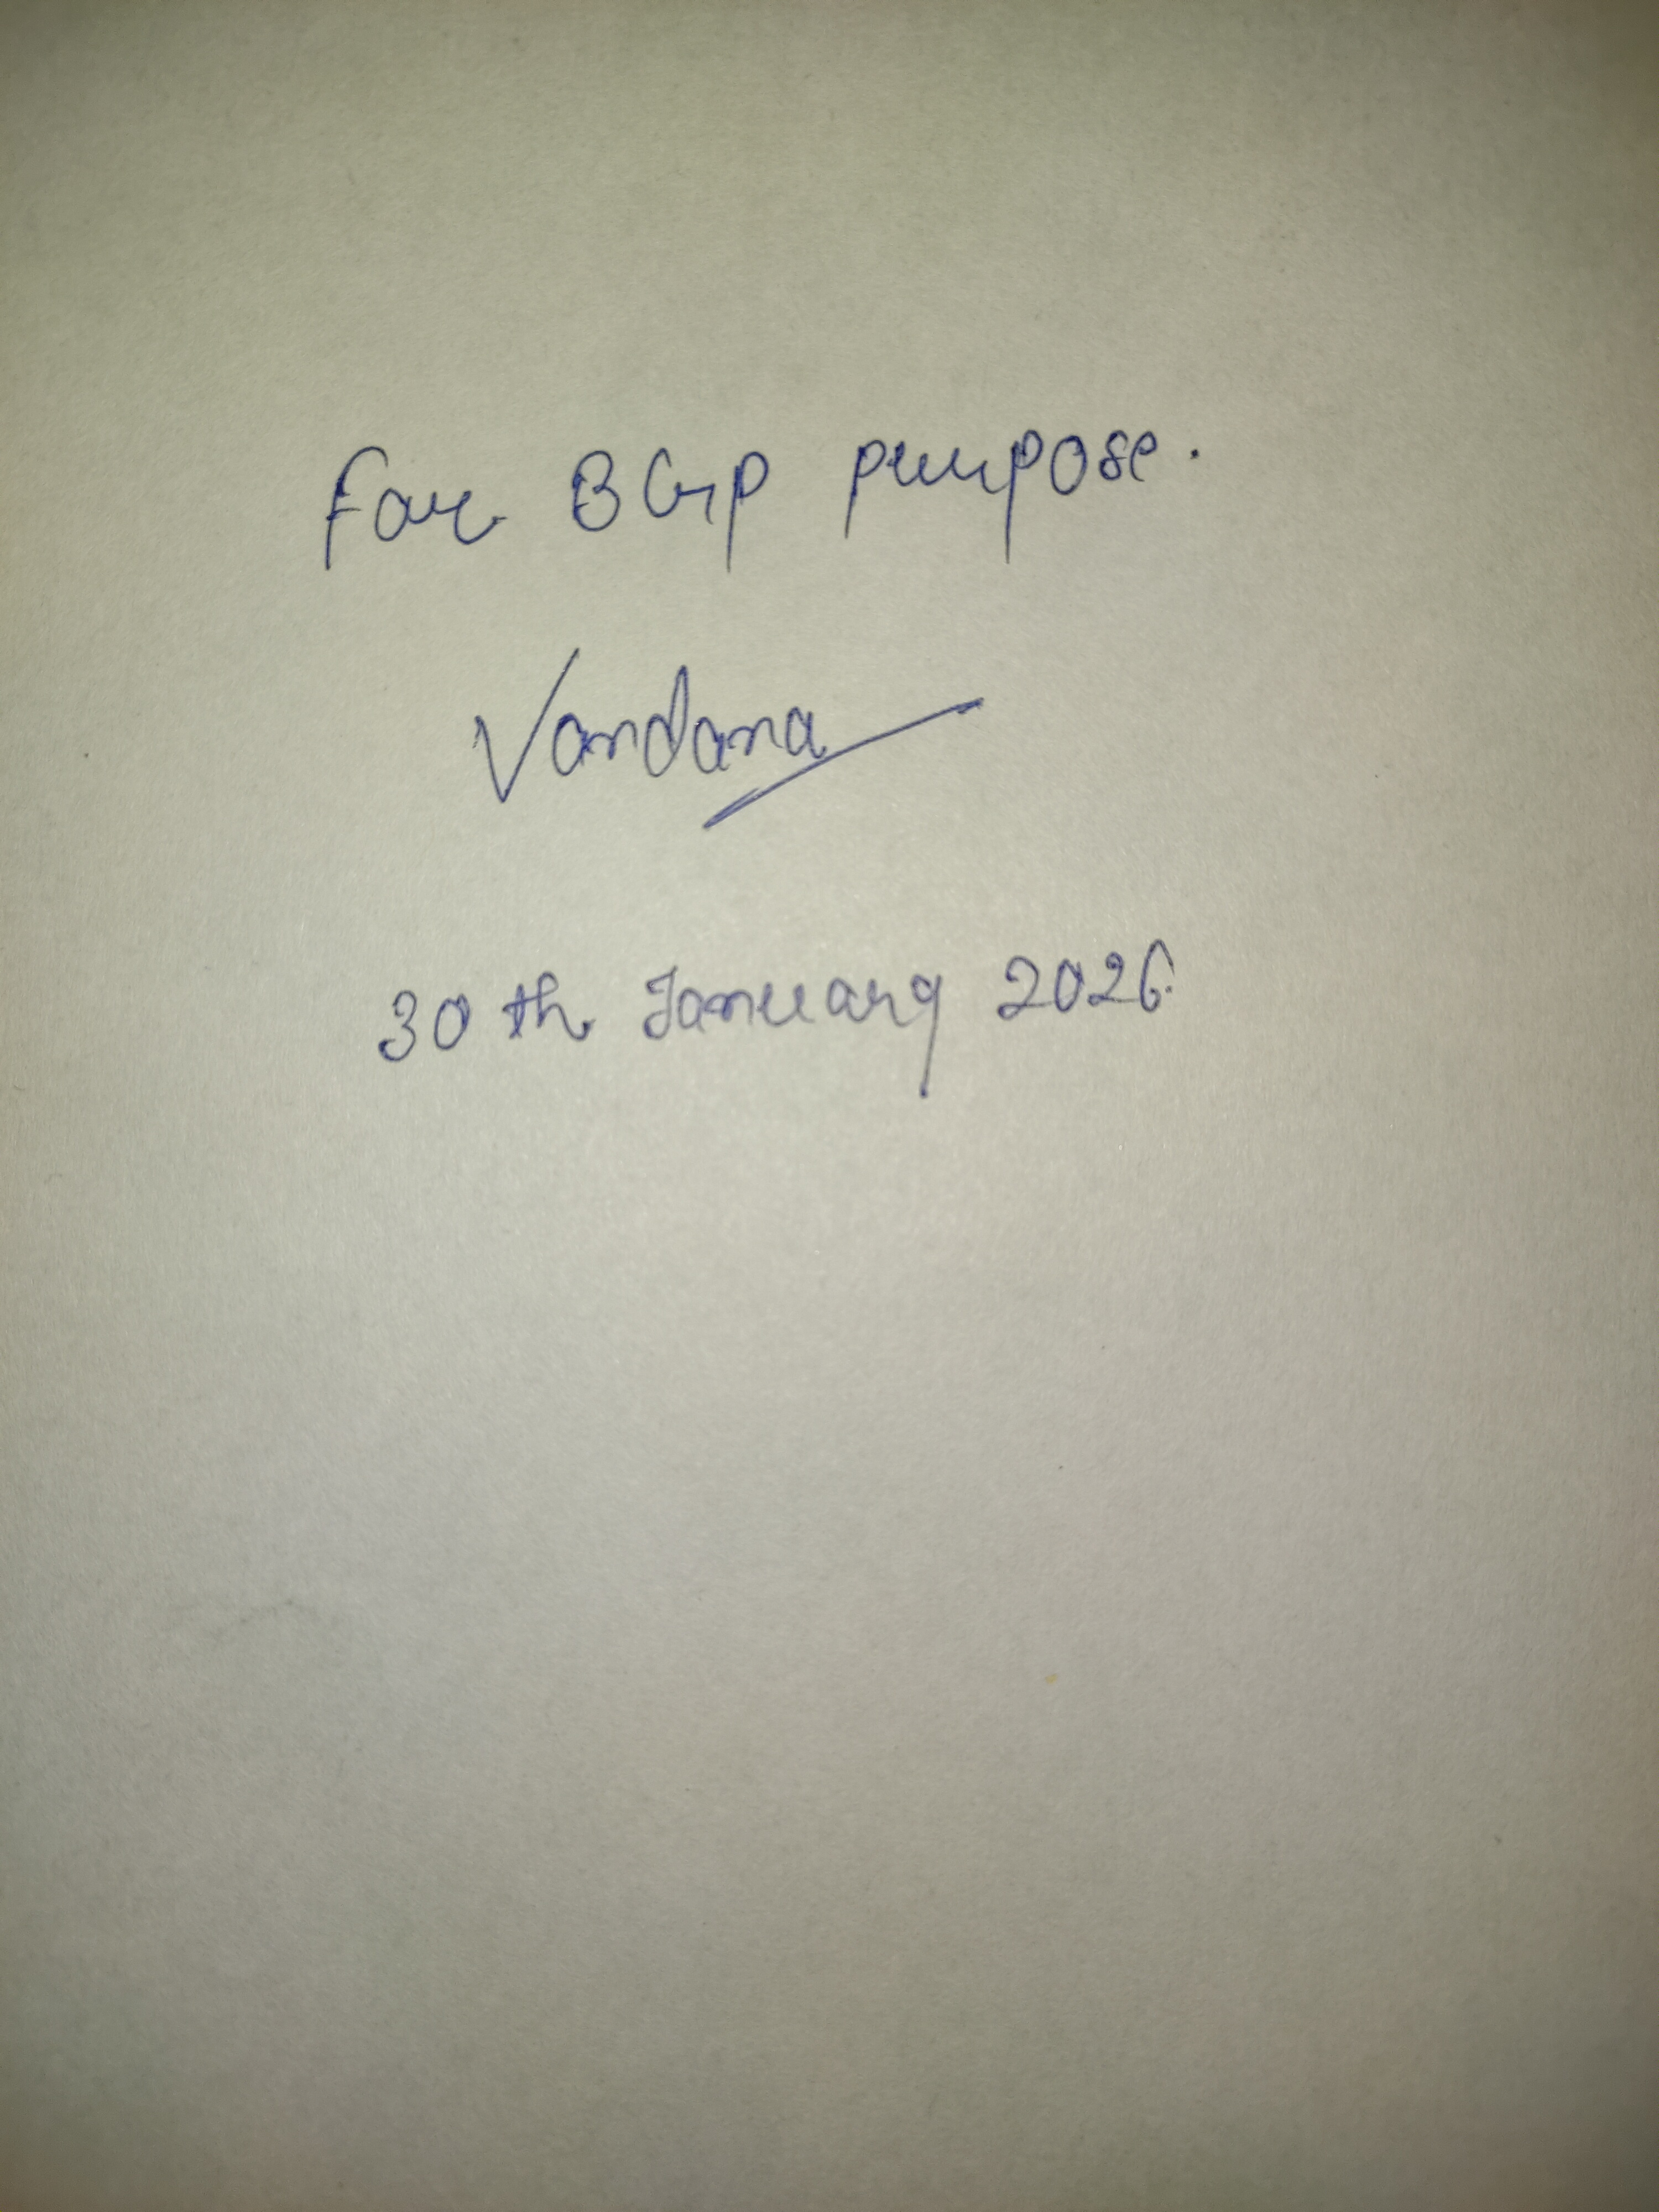 For BGP purpose.
Vandana
30th January 2026.